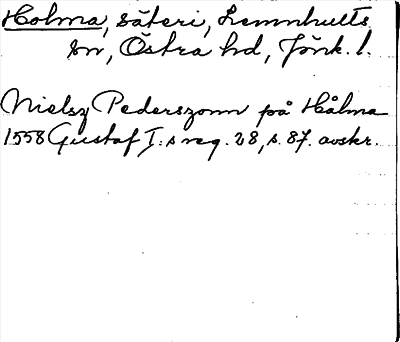 Holma, säteri, Lemnhults
sn, Östra hd, Jönk. l.
Nielsz Pederszonn på Hålma
1558 Gustaf I:s reg. 28, s. 87. avskr.